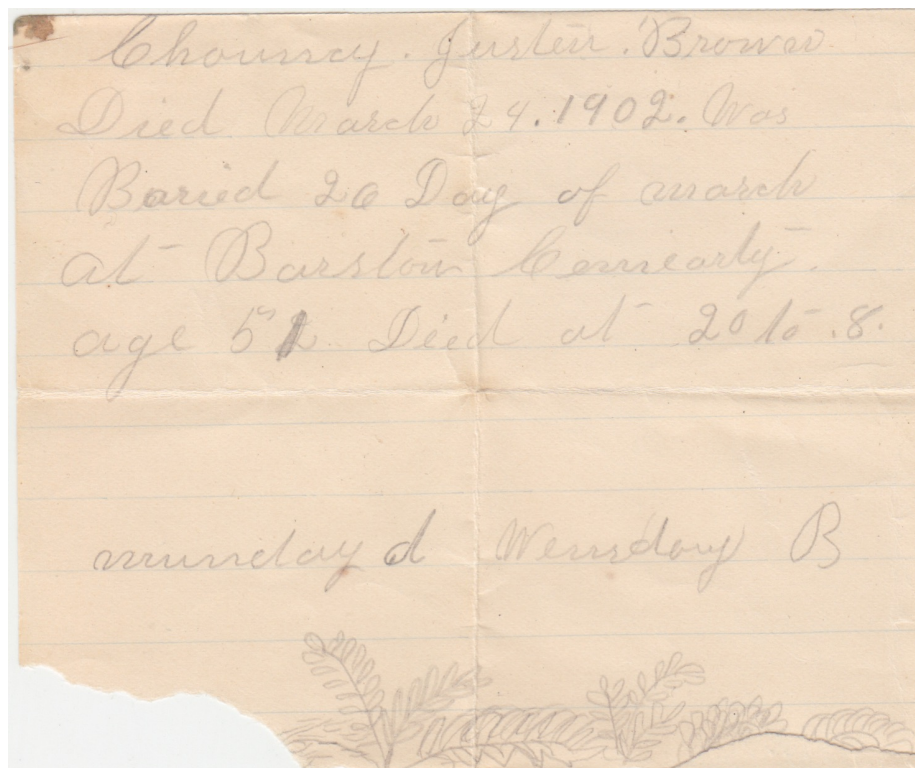 Chouncy. Justin. Brown
Died March 24. 1902. Was
Buried 26 Day of march
at Barston Cemearty.
age 52 Died at 20 to .8.
munday d Wensday B